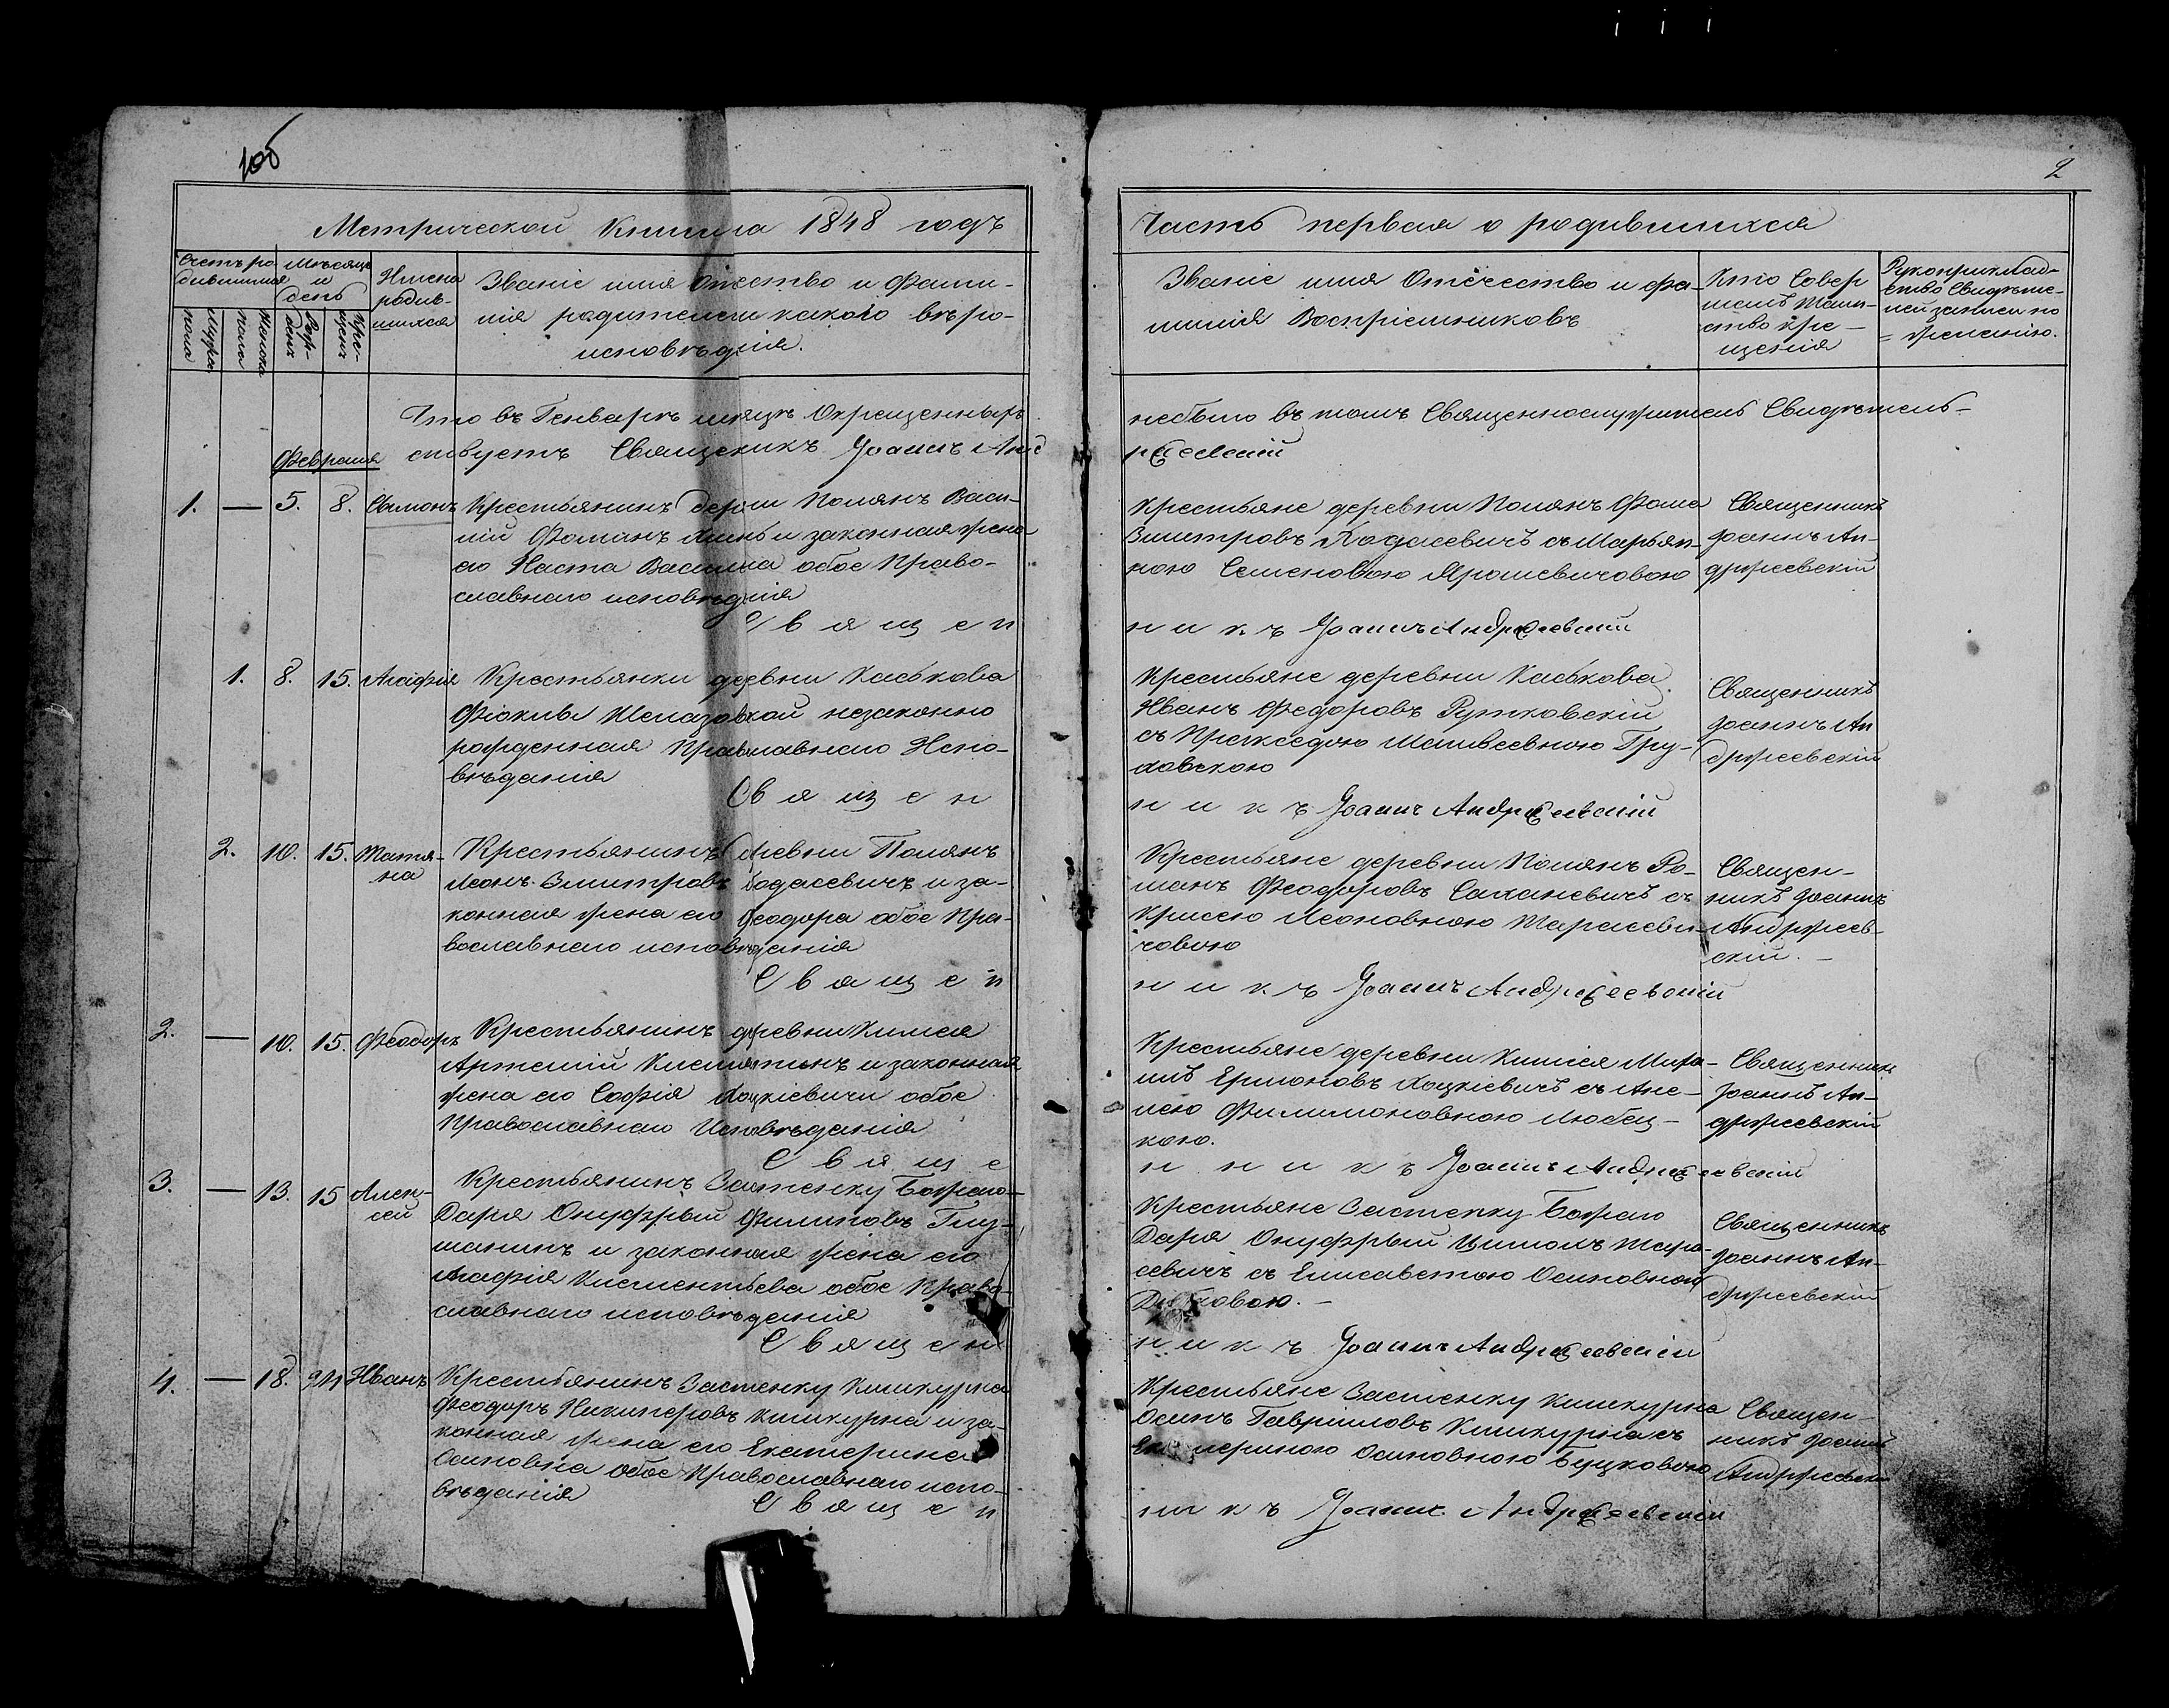 106
2
Метрической книги на 1848 годъ
Часть первая о родившихся
Счетъ ро-
дившихся
Мѣсяцъ
и
день
Имена
родив-
шихся
Званіе имя Отчество и Фами-
лія родителей какого вѣро-
исповѣданія.
Мужска
пола
Женска
пола
Рож-
денъ
Кре-
щенъ
Званіе имя Отечество и фа-
милія Воспріемниковъ
Кто Совер
шалъ Таин-
ство кре-
щенія
Рукоприклад-
ство Свидѣте-
лей записи по
желанію.
Что въ Генварѣ мѣсяцѣ Окрещенныхъ
небыло въ томъ Священнослужитель Свидѣтель-
Февраля
ствуетъ Священникъ Іоаннъ Анд
ржеевскій
1. — 5. 8. Сымонъ Крестьянинъ дерни Полянъ Васи-
лій и законная жена
его Наста обое Право-
славнаго исповѣданія
С в я щ е н
Крестьяне деревни Полянъ Фома
Змитровъ Ходасевичъ съ Марьян-
ною Семеновою Ярошевичовою
н и к ъ Іоаннъ Андржеевскій
Священникъ
Іоаннъ Ан-
држеевскій
1. 8. 15. Агафія Крестьянки деревни Каськова
незаконно
рожденная Православнаго Испо-
вѣданія
С в я щ е н
Крестьяне деревни Каськова
Иванъ Федоровъ Рутковскій
съ Праксedою Матвеевною Гру-
ховскою
н и к ъ Іоаннъ Андржеевскій
Священникъ
Іоаннъ Ан
држеевскій
2. 10. 15. Татя-
на
Крестьянинъ деревни Полянъ
Леонъ Змитровъ Ходасевичъ и за-
конная жена его Феодора обое Пра-
вославнаго исповѣданія
С в я щ е н
Крестьяне деревни Полянъ Ро-
манъ Феодоровъ Саханевичъ съ
Леоновною Тарасеви-
човою
н и к ъ Іоаннъ Андржеевскій
Священ-
никъ Іоаннъ
Андржеев-
скій. —
2. — 10. 15. Феодоръ Крестьянинъ деревни
Артемій и законная
жена его Софія Хоцкіевичи обое
Православнаго Исповѣданія
С в я щ е
Крестьяне деревни Миха-
илъ Ермоновъ Хоцкіевичъ съ Ане-
лею Филимоновною Любец-
кою.
н н и к ъ Іоаннъ Андржеевскій
Священникъ
Іоаннъ Ан-
држеевскій
3. — 13. 15 Алек-
сей
Крестьянинъ Застенку Божаго
Дара Онуфрый Филиповъ Глу-
шанинъ и законная жена его
Агафія Климентьева обое Право-
славнаго исповѣданія
С в я щ е н
Крестьяне Застенку Божаго
Дара Онуфрый Тара-
севичъ съ Елисаветою Осиповною
н и к ъ Іоаннъ Андржеевскій
Священникъ
Іоаннъ Ан-
држеевскій
4. — 18. 24 Иванъ Крестьянинъ Застенку Кишкурна
Феодоръ Никипоровъ Кишкурна и за-
конная жена его Екатерина
Осиповна обое Православнаго испо-
вѣданія
С в я щ е н
Крестьяне Застенку Кишкурна
Осипъ Гавриловъ Кишкурна съ
Екатериною Осиповною Буцковою
ни к ъ Іоаннъ Андржеевскій
Священ-
никъ Іоаннъ
Андржеевскій